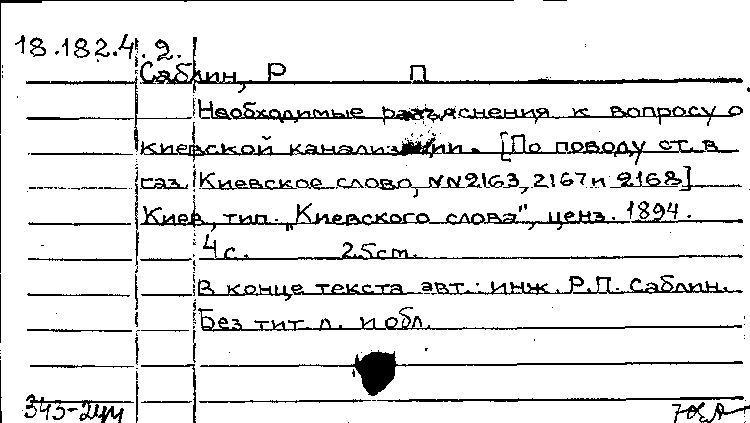 18.182.4.2.
Саблин, Р П
Необходимые разъяснения к вопросу о
киевской канализации. [По поводу ст. в
газ. Киевское слово, NN2163, 2167 и 2168]
Киев, тип. „Киевского слова", ценз. 1894.
4 с. 25см.
В конце текста авт.: инж. Р.П. Саблин.
Без тит. л. и обл.